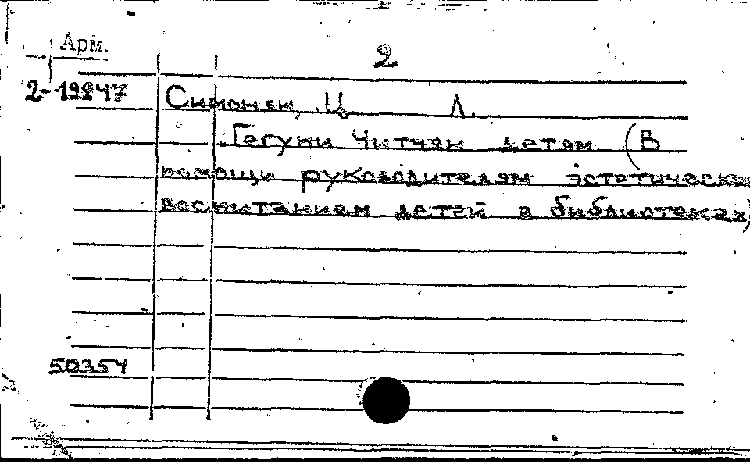 2
Арм.
2-19847
Симонян, Ц. Л.
Гегуни Читчян детям (В
помощь руководителям эстетическим
воспитанием детей в библиотеках)
50354